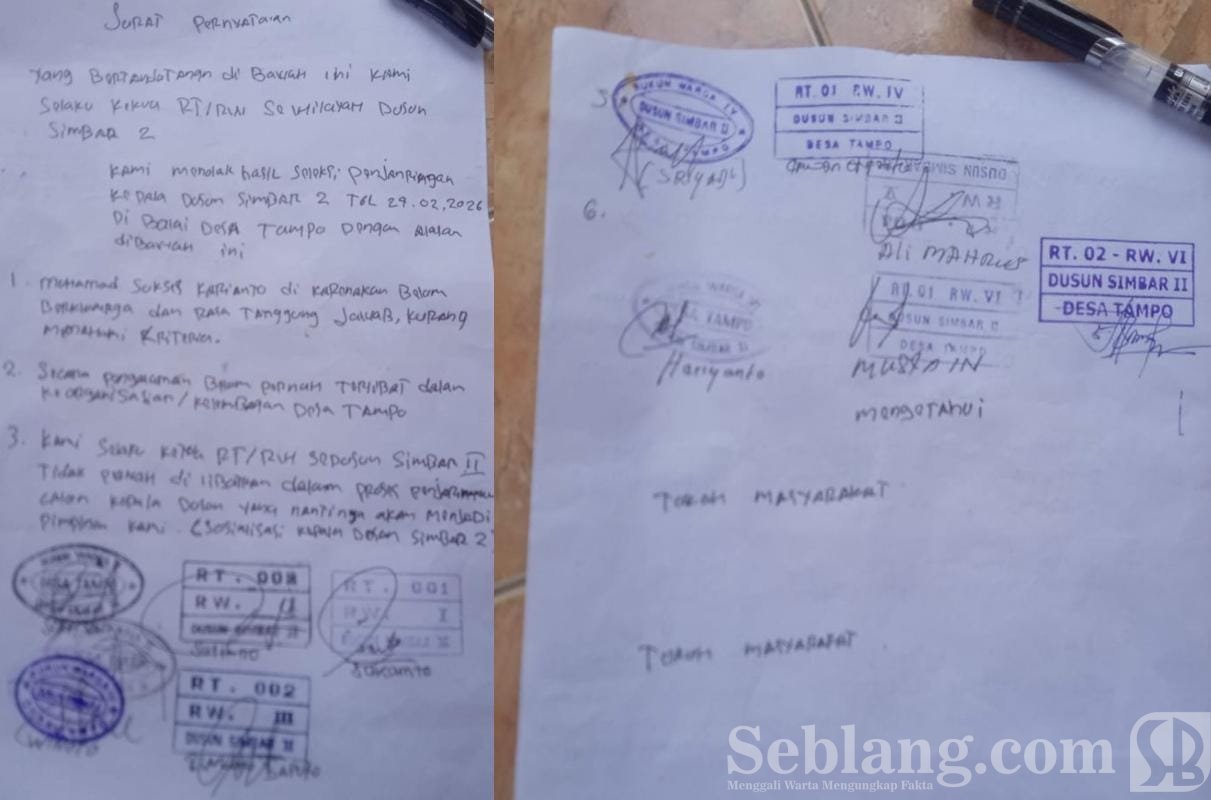 SURAT PERNYATAAN
Yang BERTANDATANGN di BAWAH ini KAMI
Selaku Ketua RT/RW SeWilayah Dusun
SIMBAR 2
KAMI menolak hasil seleksi penjaringan
KEPALA DUSUN SIMBAR 2 TGL 29.02.2026
Di Balai DESA TAMPO Dengan Alasan
diBAWAH ini
1. MUHAMAD SUKSES KARIANTO di KARENAKAN Belum
BERKELUARGA dan RASA TANGGUNG JAWAB, KURANG
MEMENUHI KRITERIA.
2. Secara pengalaman Belum pernah TERLIBAT dalam
KEORGANISASIAN/KELEMBAGAAN DESA TAMPO
3. KAMI Selaku Ketua RT/RW SEDUSUN SIMBAR II
TIDAK PERNAH di LIBATKAN dalam proses penjaringan
CALON KEPALA DUSUN yang nantinya akan MENJADI
Pimpinan kami. (Sosialisasi KEPALA DUSUN SIMBAR 2
DESA TAMPO
RT. 008
RW. II
DUSUN SIMBAR II
RT. 001
RW. I
Sukamto
RT. 002
RW. III
DUSUN SIMBAR II
5.
RUKUN WARGA IV
DUSUN SIMBAR II
DESA TAMPO
(SRIYADI)
RT. 01 RW. IV
DUSUN SIMBAR II
DESA TAMPO
DUSUN SIMBAR
RW. IV
ALI MAHRUS
6.
TAMPO
SIMBAR II
Hariyanto
RT. 01 RW. VI
DUSUN SIMBAR II
DESA TAMPO
MUSTAIN
RT. 02 - RW. VI
DUSUN SIMBAR II
DESA TAMPO
mengetahui
TOKOH MASYARAKAT
TOKOH MASYARAKAT
Seblang.com
Menggali Warta Mengungkap Fakta